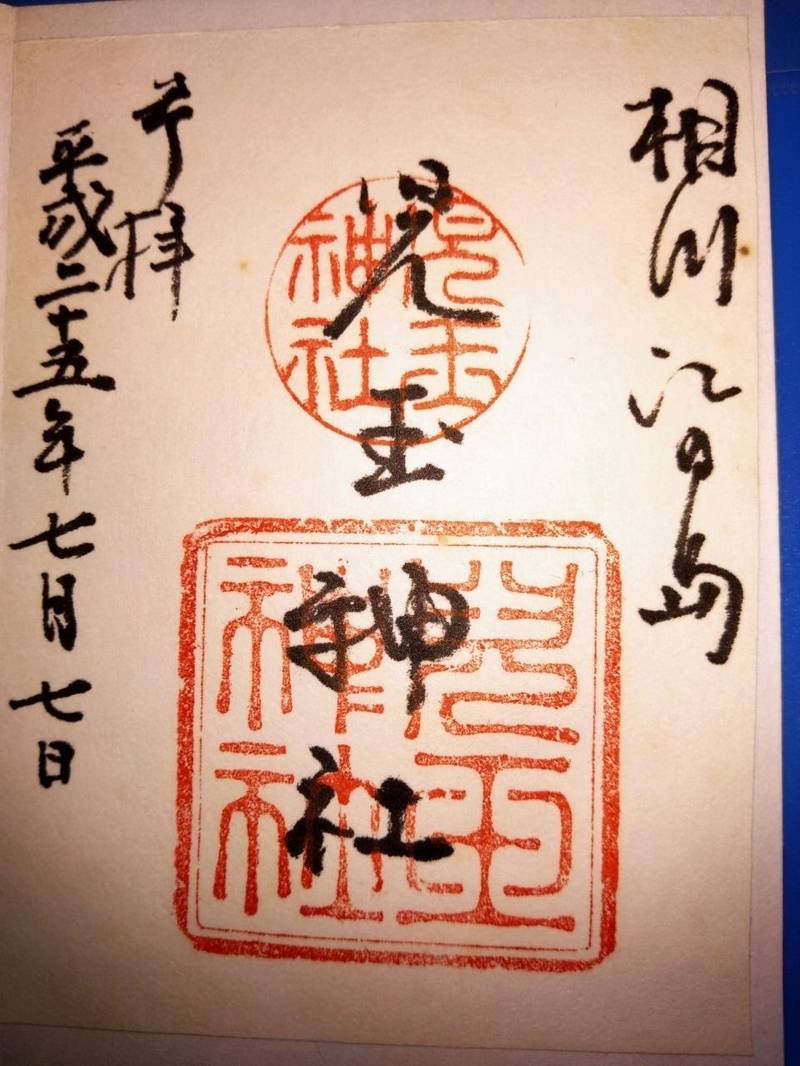 相州 江の島
児玉神社
兒玉
神社
兒玉
神社
奉拝
平成二十五年七月七日